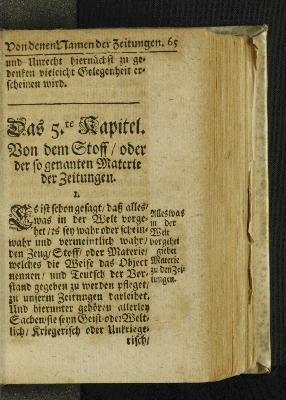 Von denen Namen der Zeitungen. 65
und Unrecht hiernächst zu ge-
dencken vieleicht Gelegenheit er-
scheinen wird.
Das 5.te Kapitel.
Von dem Stoff / oder
der so genanten Materie
der Zeitungen.
1.
Es ist schon gesagt / daß alles /
was in der Welt vorge-
het / es sey wahr oder schein-
wahr und vermeintlich wahr /
den Zeug / Stoff / oder Materie /
welches die Weise das Object
nennen / und Teutsch der Vor-
stand gegeben zu werden pfleget /
zu unsern Zeitungen darleihet.
Und hierunter gehören allerley
Sachen / sie seyn Geist- oder Welt-
lich / Kriegerisch oder Unkriege-
risch /
Alles was
in der
Welt
vorgehet
giebet
Materie
zu den Zei-
tungen.